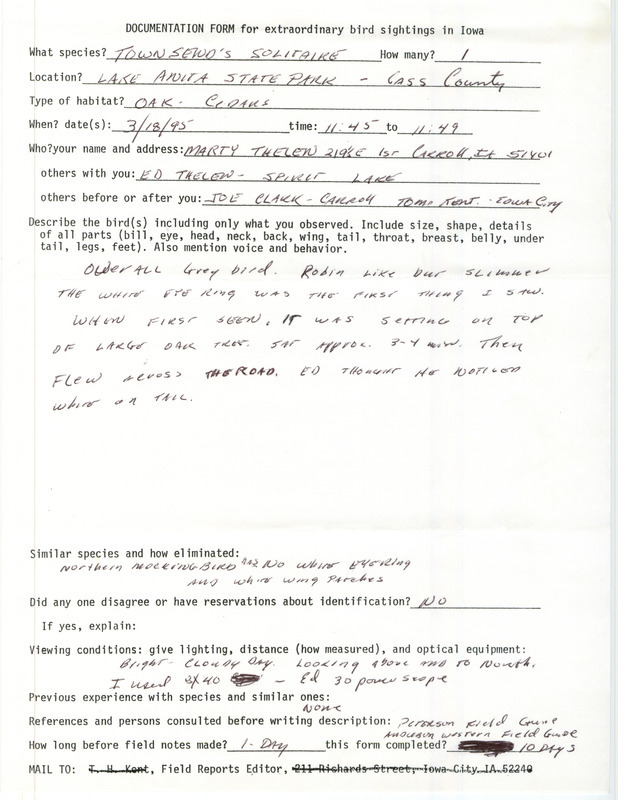 DOCUMENTATION FORM for extraordinary bird sightings in Iowa
What species? TOWNSEND'S SOLITAIRE How many? 1
Location? LAKE ANITA STATE PARK - CASS County
Type of habitat? OAK - CEDARS
When? date(s): 3/18/95 time: 11:45 to 11:49
Who? your name and address: MARTY THELEN 219½E 1ST CARROLL, IA 51401
others with you: ED THELEN - SPIRIT LAKE
others before or after you: JOE CLARK - CARROLL TOM KENT - IOWA City
Describe the bird(s) including only what you observed. Include size, shape, details
of all parts (bill, eye, head, neck, back, wing, tail, throat, breast, belly, under
tail, legs, feet). Also mention voice and behavior.
OverALL Grey bird. Robin Like but SLIMMER
THE WHITE EYE RING WAS THE FIRST THING I SAW.
WHEN FIRST SEEN, IT WAS SETTING ON TOP
OF LARGE OAK TREE. SAT APPROX. 3-4 MIN. Then
FLEW ACROSS THE ROAD. ED THOUGHT HE NOTICED
WHITE ON TAIL.
Similar species and how eliminated:
NORTHERN MOCKINGBIRD HAS NO WHITE EYERING
AND WHITE WING PATCHES
Did any one disagree or have reservations about identification? NO
If yes, explain:
Viewing conditions: give lighting, distance (how measured), and optical equipment:
Bright - Cloudy Day. Looking above and to North.
I used 8X40 - Ed 30 power scope
Previous experience with species and similar ones:
NONE
References and persons consulted before writing description: PETERSON Field Guide
Western Field Guide
How long before field notes made? 1 - DAY this form completed? 10 DAYS
MAIL TO: T. H. Kent, Field Reports Editor, 211 Richards Street, Iowa City, IA 52240